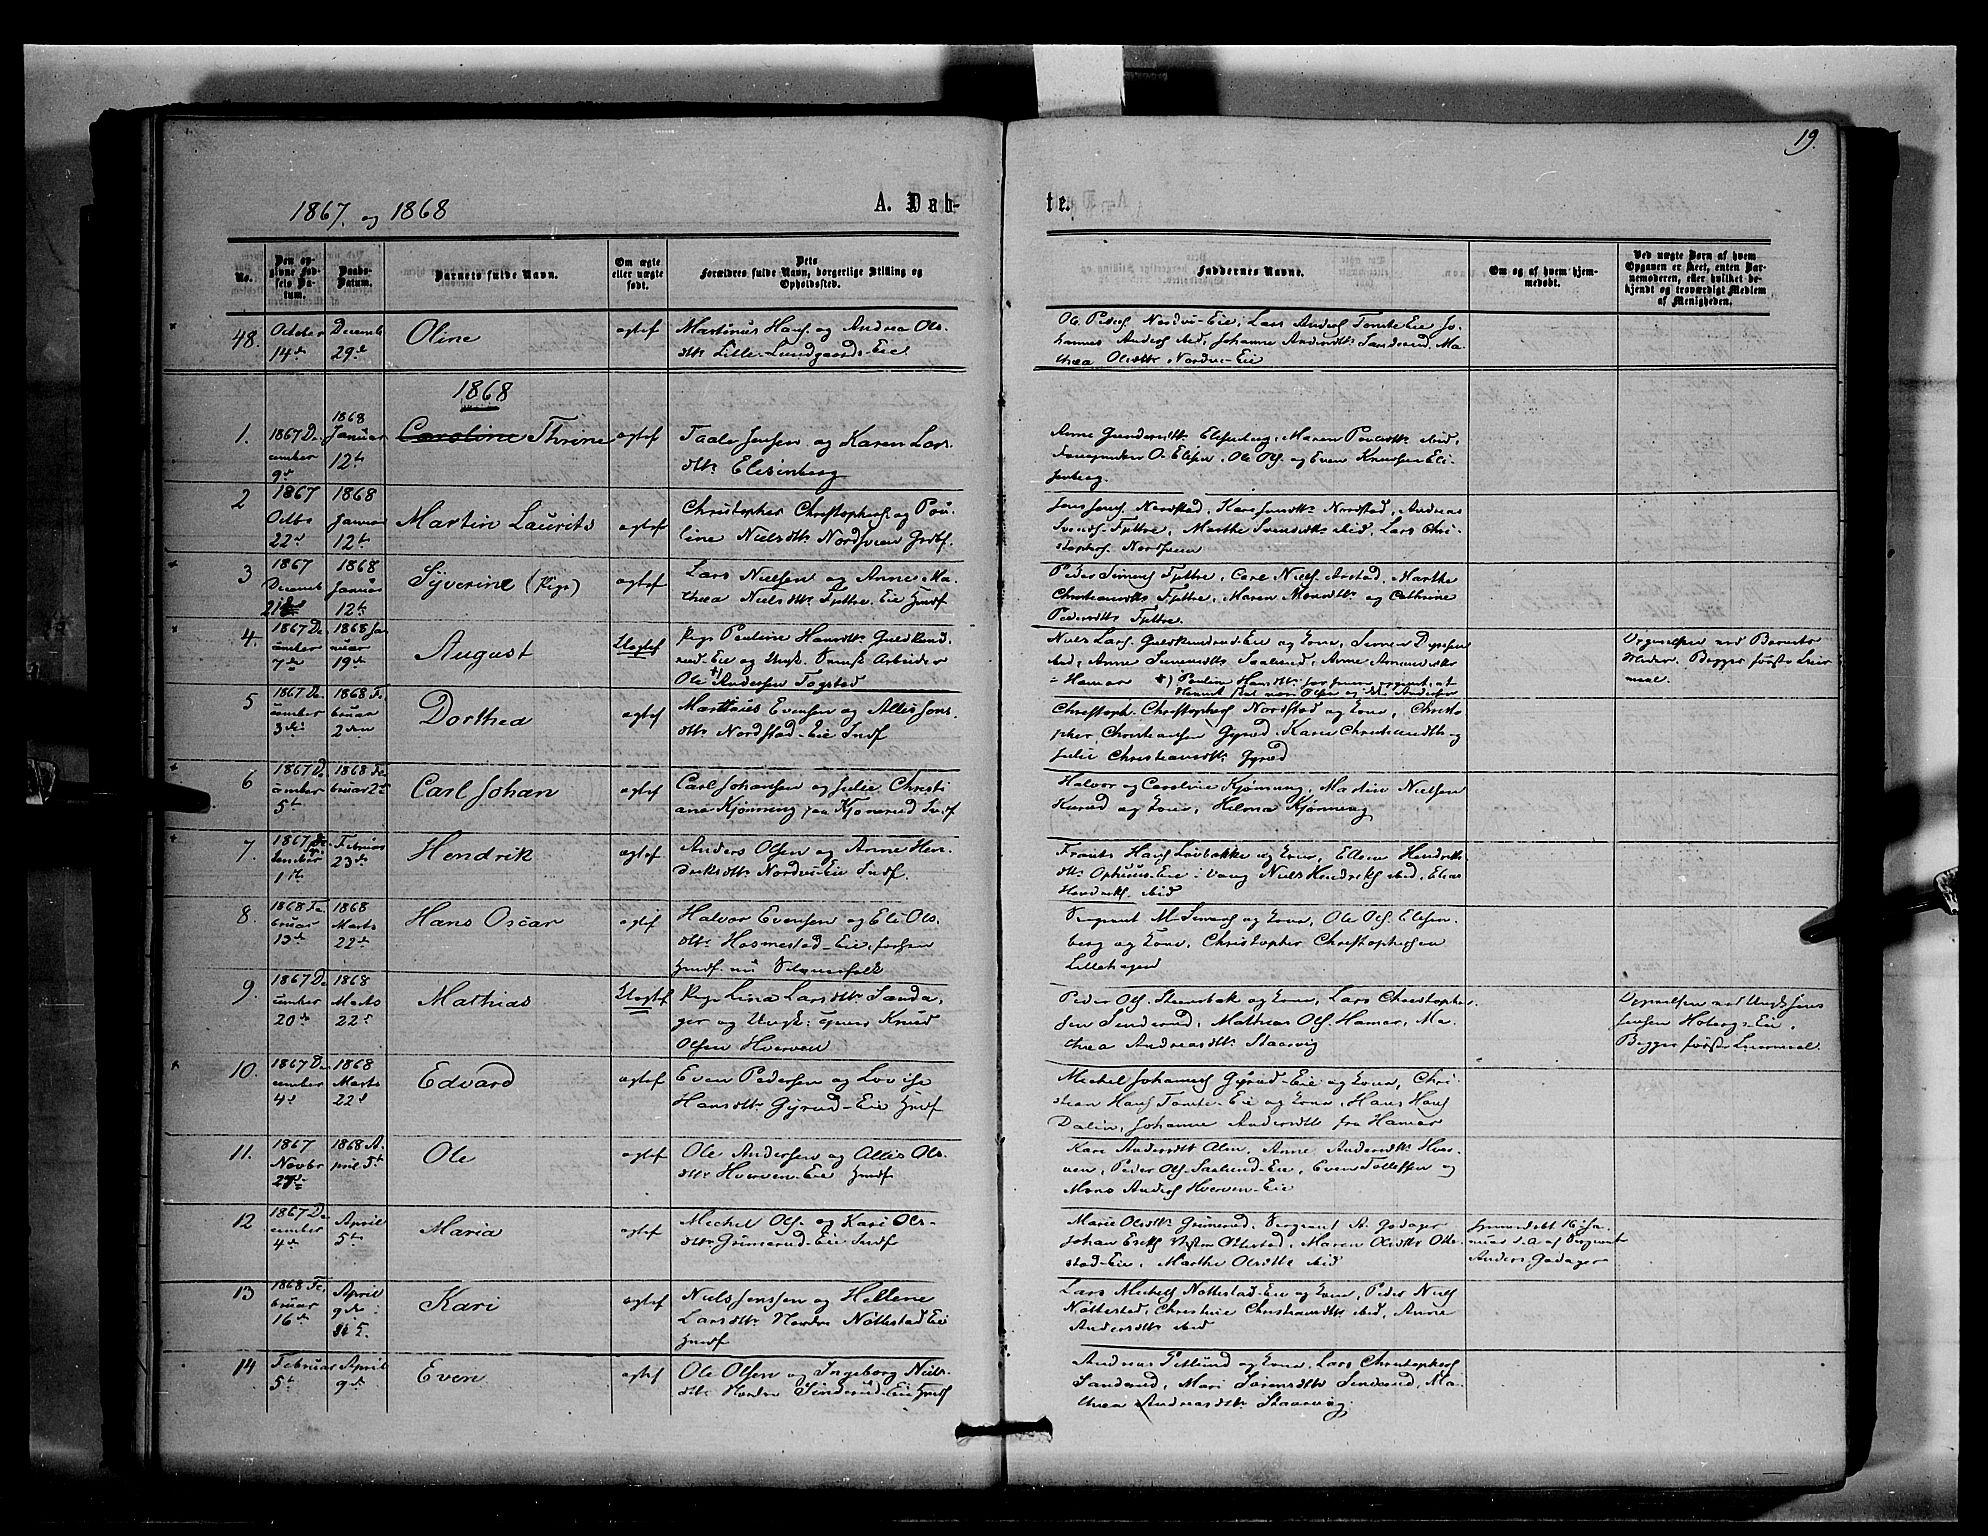 19.
1867 og 1868
A. Døb-
te.
No.
Den op-
givne Fød-
sels Da-
tum.
Daabs-
Datum.
Barnets fulde Navn.
Om ægte
eller uægte
født.
Dets
Forældres fulde Navn, borgerlige Stilling og
Opholdssted.
Faddernes Navne.
Om og af hvem hjem-
medøbt.
Ved uægte Børn af hvem
Opgaven er skeet, enten Bar-
nemoderen, eller hvilket be-
kjendt og troværdigt Medlem
af Menigheden.
48.
October
14de
Decemb
29de
Oline
ægtef
Martinus Hans. og Andrea Ols-
dtr. Lille-Lundgaards-Eie
Ole Peders Nordvi-Eie, Lars Anders Tomte Eie Jo-
hannes Anders ibid, Johanne Andersdtr. Sanderud, Ma-
thea Olsdtr Nordvi-Eie
1868
1.
1867 De
cember
9de
1868
Januar
12te
Caroline Thrine
ægtef
Taale Jensen og Karen Lars-
dtr. Elisenberg
Anne Gundersdtr. Elisenberg, Maren Poulsdtr. ibid,
O. Elisen, Ole Ols. og Even Knudsen Eli-
senberg.
2
1867
Octbr
22de
1868
Januar
12te
Martin Laurits
ægtef
Christopher Christophers. og Pou-
line Nielsdtr. Nordsveen Grdbf.
Jens Jens. Nordstad, Kari Jensdtr. Nordstad, Andreas
Svends. Fjettre, Marthe Svendsdtr. ibid, Lars Chri-
stophers. Nordsveen
3
1867
Decemb
21de
1868
Januar
12te
Syverine (Pige)
ægtef
Lars Nielsen og Anne Ma-
thea Nielsdtr. Fjettre-Eie Hmdf
Peder Simens Fjettre, Carl Niels. Arstad, Marthe
Christiansdtr Fjettre, Maren Monsdtr. og Cathrine
Pedersdtr. Fjettre.
4.
1867 De
cember
7de
1868 Ja
nuar
19de
August
Uægtef
Pige Pauline Hansdtr. Guldkund-
rud-Eie og Ungk. Svensk Arbeider
Ole *) Andersen Fogstad
Niels Lars. Guldkundrud-Eie og Kone, Simen
ibid, Anne Simensdtr. Saalund, Anne Amundsdtr.
Hamar *) Pauline Hansdtr.
Opgivelsen ved Barnets
Moder. Begges første Leier-
maal.
5
1867 De
cember
3die
1868 Fe
bruar
2den
Dorthea
ægtef
Matthias Evensen og Alis Jens-
dtr. Nordstad-Eie Indf
Christoph. Christophers Nordstad og Kone, Christo-
pher Christiansen Gyrud, Karen Christiansdtr. og
Julie Christiansdtr. Gyrud
6
1867 De
cember
5te
1868 Fe
bruar 2de
Carl Johan
ægtef
Carl Johansen og Julie Christi
ane Kjønning paa Kjonerud Indf
Halvor og Caroline Kjønning, Martin Nielsen
og Kone, Helma Kjønning
7.
1867
tember
1ste
Februar
23de
Hendrik
ægtef
Anders Olsen og Anne Hen-
driksdtr. Nordvi-Eie Indf.
Frants Hans Løvbakke og Kone, Ellen Hendriks-
dtr. Ophuus-Eie i Vang Niels Hendriks. ibid, Elias
Hendriks. ibid
8.
1868 Fe
bruar
13de
1868
Marts
22de
Hans Oscar
ægtef
Halvor Evensen og Eli Ols-
dtr. Hosmestad-Eie, forhen
Hmdf. nu
Sergeant M. Simens og Kone, Ole Ols. Elisen-
berg og Kone, Christopher Christophersen
Lillehagen
9.
1867 De
cember
20de
1868
Marts
22de
Mathias
Uægtef
Pige Lina Larsdtr. Sanda-
ger og Ungk. Knud
Olsen Hverven
Peder Ols. Steensbak og Kone, Lars Christopher-
sen Sanderud, Mathias Ols. Hamar, Ma-
thea Andreasdtr. Staarvig
Opgivelsen ved Ungk. Jens
Jensen Hoberg-Eie.
Begges første Leiermaal.
10.
1867 De
cember
4de
1868
Marts
22de
Edvard
ægtef
Even Pedersen og Lovise
Hansdtr. Gyrud-Eie Hmdf
Michel Johannes Gyrud-Eie og Kone, Chri-
stian Hans Tomte-Eie og Kone, Hans Hans
Dalin, Johanne Andersdtr fra Hamar
11.
1867
Novbr
27de
1868 A-
pril 5te
Ole
ægtef
Ole Andersen og Alis Ols-
dtr. Hverven-Eie Hmdf
Kari Andersdtr Alin, Anne Andersdtr. Hver-
ven, Peder Ols. Saalund-Eie, Even Tollefsen og
Mons Anders Hverven-Eie
12
1867 De
cember
4de
April
5te
Maria
ægtef
Michel Ols. og Kari Ols-
dtr Grimerud-Eie Indf
Marie Olsdtr. Grimerud, Sergeant A. Godager
Johan Eriks Vestre Ottestad, Maren Olsdtr. Otte-
stad-Eie, Marthe Olsdtr ibid
Hjemmedøbt 16 Ja-
nuar d. A af Sergeant
Anders Godager
13
1868 Fe
bruar
16de
April
9de
Kari
ægtef
Niels Jensen og Hellene
Larsdtr. Nordre Nøttestad Eie
Hmdf
Lars Michels Nøttestad-Eie og Kone, Peder Niels
Nøttestad, Christine Christiansdtr. ibid, Anne
Andersdtr. ibid
14
Februar
5te
April
9de
Even
ægtef
Ole Olsen og Ingeborg Niels-
dtr. Nordre Sinderud-Eie Hmdf
Andreas Petlund og Kone, Lars Christophers
Sanderud, Mari Sørensdtr. Sinderud, Ma-
thea Andreasdtr. Staarvig.